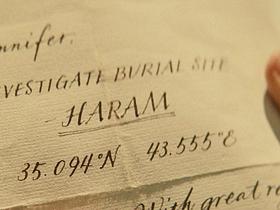 nnifer.
VESTIGATE BURIAL SITE
HARAM
35.094°N 43.555°E
With great re